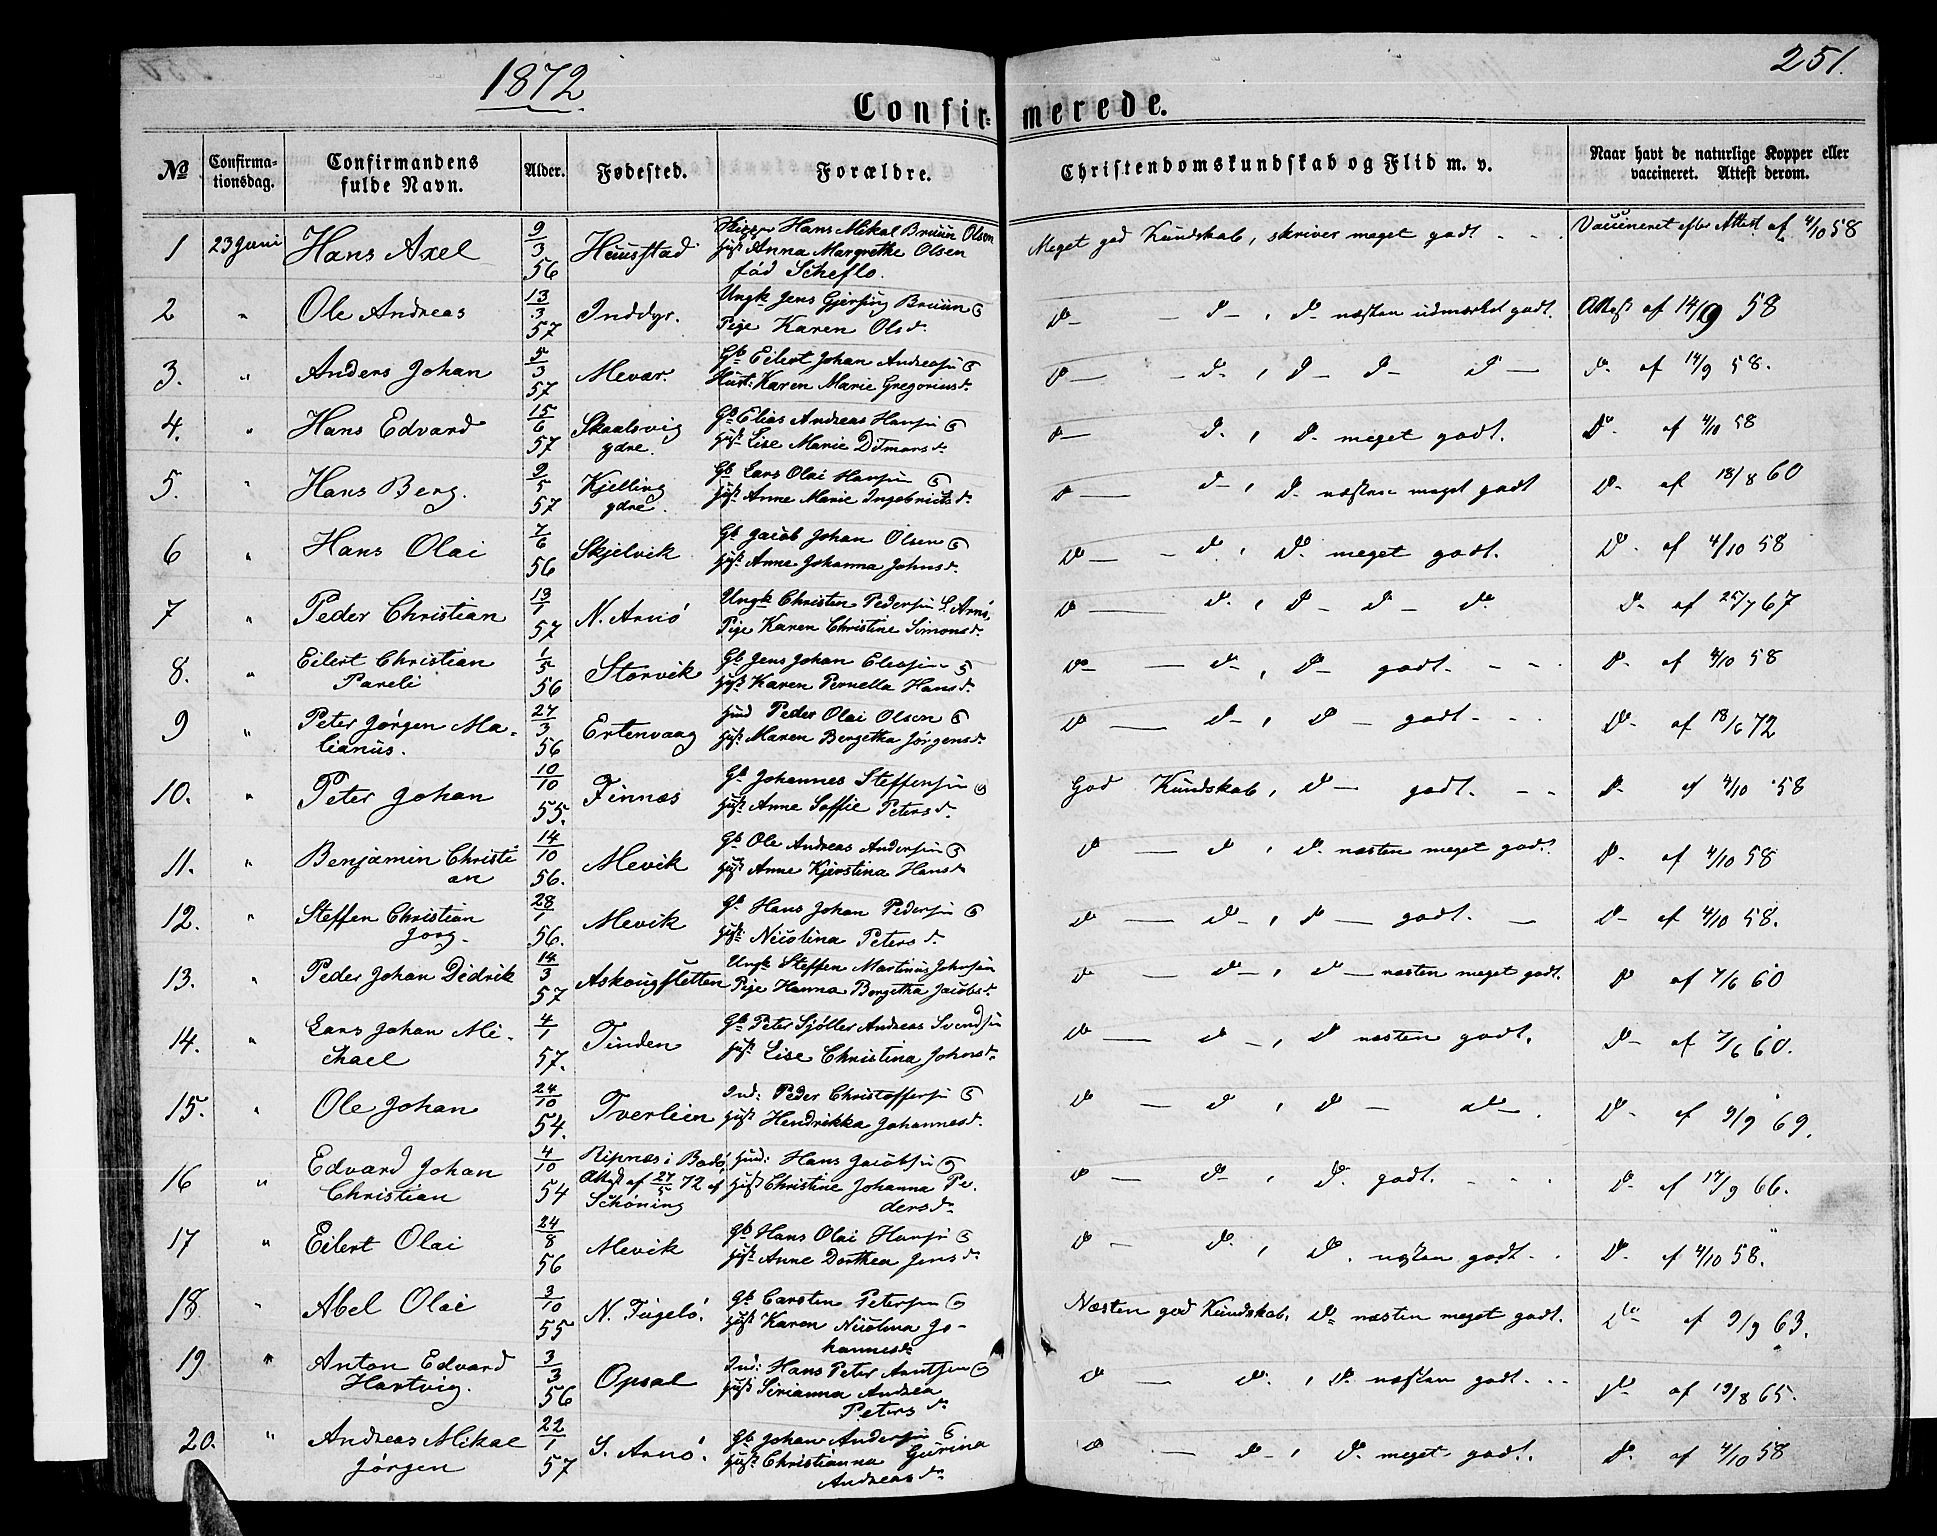 1872
251.
Confirmerede.
No
Confirma-
tionsdag.
Confirmandens
fulde Navn.
Alder.
Fødested.
Forældre.
Christendomskundskab og Flid m. v.
Naar havt de naturlige Kopper eller
vaccineret. Attest derom.
1 23 Juni Hans Axel 9/3 56 Huustad Hans Mikal Bruun Olsen
Hust Anna Margrethe Olsen
fød Scheflo.
Meget god Kundskab, skriver meget godt - - . Vaccineret efter Attest af 4/10 58
2 " Ole Andreas 13/3 57 Inddyr. Ungk Jens Gjersing Bruun
Pige Karen Olsd.
Do — d—, d. næsten udmærket godt. Attest af 14/9 58
3. " Anders Johan 5/3 57 Mevær. Gb Eilert Johan Andreass.
Hust: Karen Marie Gregoriusd.
D— — d., D— D— D— D. af 14/9 58.
4. " Hans Edvard 15/6 57 Skaalsvig ydre. Gb Elias Andreas Hansen
Hust Lise Marie Ditmarsd.
D— D., D. meget godt. D. af 4/10 58
5. " Hans Berg. 9/5 57 Kjelling ydre. Gb Lars Olai Hansen
Hust Anne Marie Ingebrictsd.
D— D—, D. næsten meget godt D. af 18/8 60
6 " Hans Olai 7/6 56 Skjelvik Gb Jacob Johan Olsen
Hust Anne Johanna Johnsd.
Do — — D., D. meget godt. D. af 4/10 58
7 " Peder Christian 13/1 57 N. Arnø Ungk Christen Pedersen S. Arnø,
Pige Karen Christine Simonsd.
D— D., D— D— Do D. af 25/7 67
8. " Eilert Christian
Pareli 1/5 56 Storvik Gb Jens Johan Eleasen
Hust Karen Pernella Hansd.
Do — — D—, D— godt. - - . D. af 4/10 58
9 " Peter Jørgen Ma-
lianus. 27/3 56 Ertenvaag Hmd Peder Olai Olsen
Hust: Maren Bergetha Jørgensd.
D — D—, D— godt. - - . D— af 18/6 72
10. " Peter Johan 10/10 55. Finnæs Gb Johannes Steffensen
Hust Anne Soffie Petersd.
God Kundskab, D— godt. - - D. af 4/10 58
11. " Benjamin Christi
an 14/10 56. Mevik Gb Ole Andreas Andersen
Hust Anne Kjerstina Hansd.
D — D, D. næsten meget godt. D. af 4/10 58
12. " Steffen Christian
Jorg. 28/1 56. Mevik Gb Hans Johan Pedersen
Hust: Nicolina Petersd.
D — D—, D— godt. — D— af 4/10 58.
13. " Peder Johan Didrik 14/3 57 Askougsletten Ungk Steffen Martinus Johnsen
Pige Hanna Bergetha Jacobsd.
D — D—, D— næsten meget godt. D af 7/6 60
14. " Lars Johan Mi-
chael 4/1 57. Tinden Gb Peter Sjøller Andreas Svendsen
Hust Lise Christina Johnsd.
D — D—, D næsten godt. D— af 7/6 60.
15. " Ole Johan 24/10 54. Tverlien Ind: Peder Christoffersen
Hust Hendrikka Johannesd.
D — D, D — D— . D. af 9/9 69.
16 " Edvard Johan
Christian 4/10 54 Ripnæs i Bodø
Attest af 27/5 72 af
Schøning Hmd: Hans Jacobsen
Hust Christine Johanna Pe-
dersd.
D — D—, D. godt. - - . D. af 17/9 66.
17 " Eilert Olai 24/8 56 Mevik Gb Hans Olai Hansen
Hust Anne Dorthea Jensd.
D — D., D. næsten godt. . . D. af 4/10 58.
18. " Abel Olai 3/10 55 N. Fugelø. Gb Carsten Petersen
Hust Karen Nicolina Jo-
hannesd.
Næsten god Kundskab, D. næsten meget godt. Do af 9/9 63.
19. " Anton Edvard
Hartvig. 3/3 56 Opsal Ind: Hans Peter Arntsen
Hust Sirianna Andrea
Petersd.
D — D., D. næsten godt. - - Do af 19/8 65.
20. " Andreas Mikal
Jørgen 22/1 57 S. Arnø. Gb Johan Andersen
Hust Christianna Gurina
Andreasd.
D — D—, D. meget godt. D. af 4/10 58